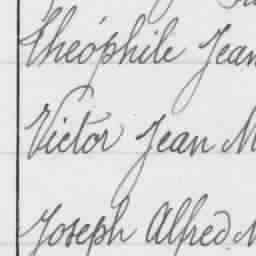 Théophile Jean
Victor Jean M
Joseph Alfred M